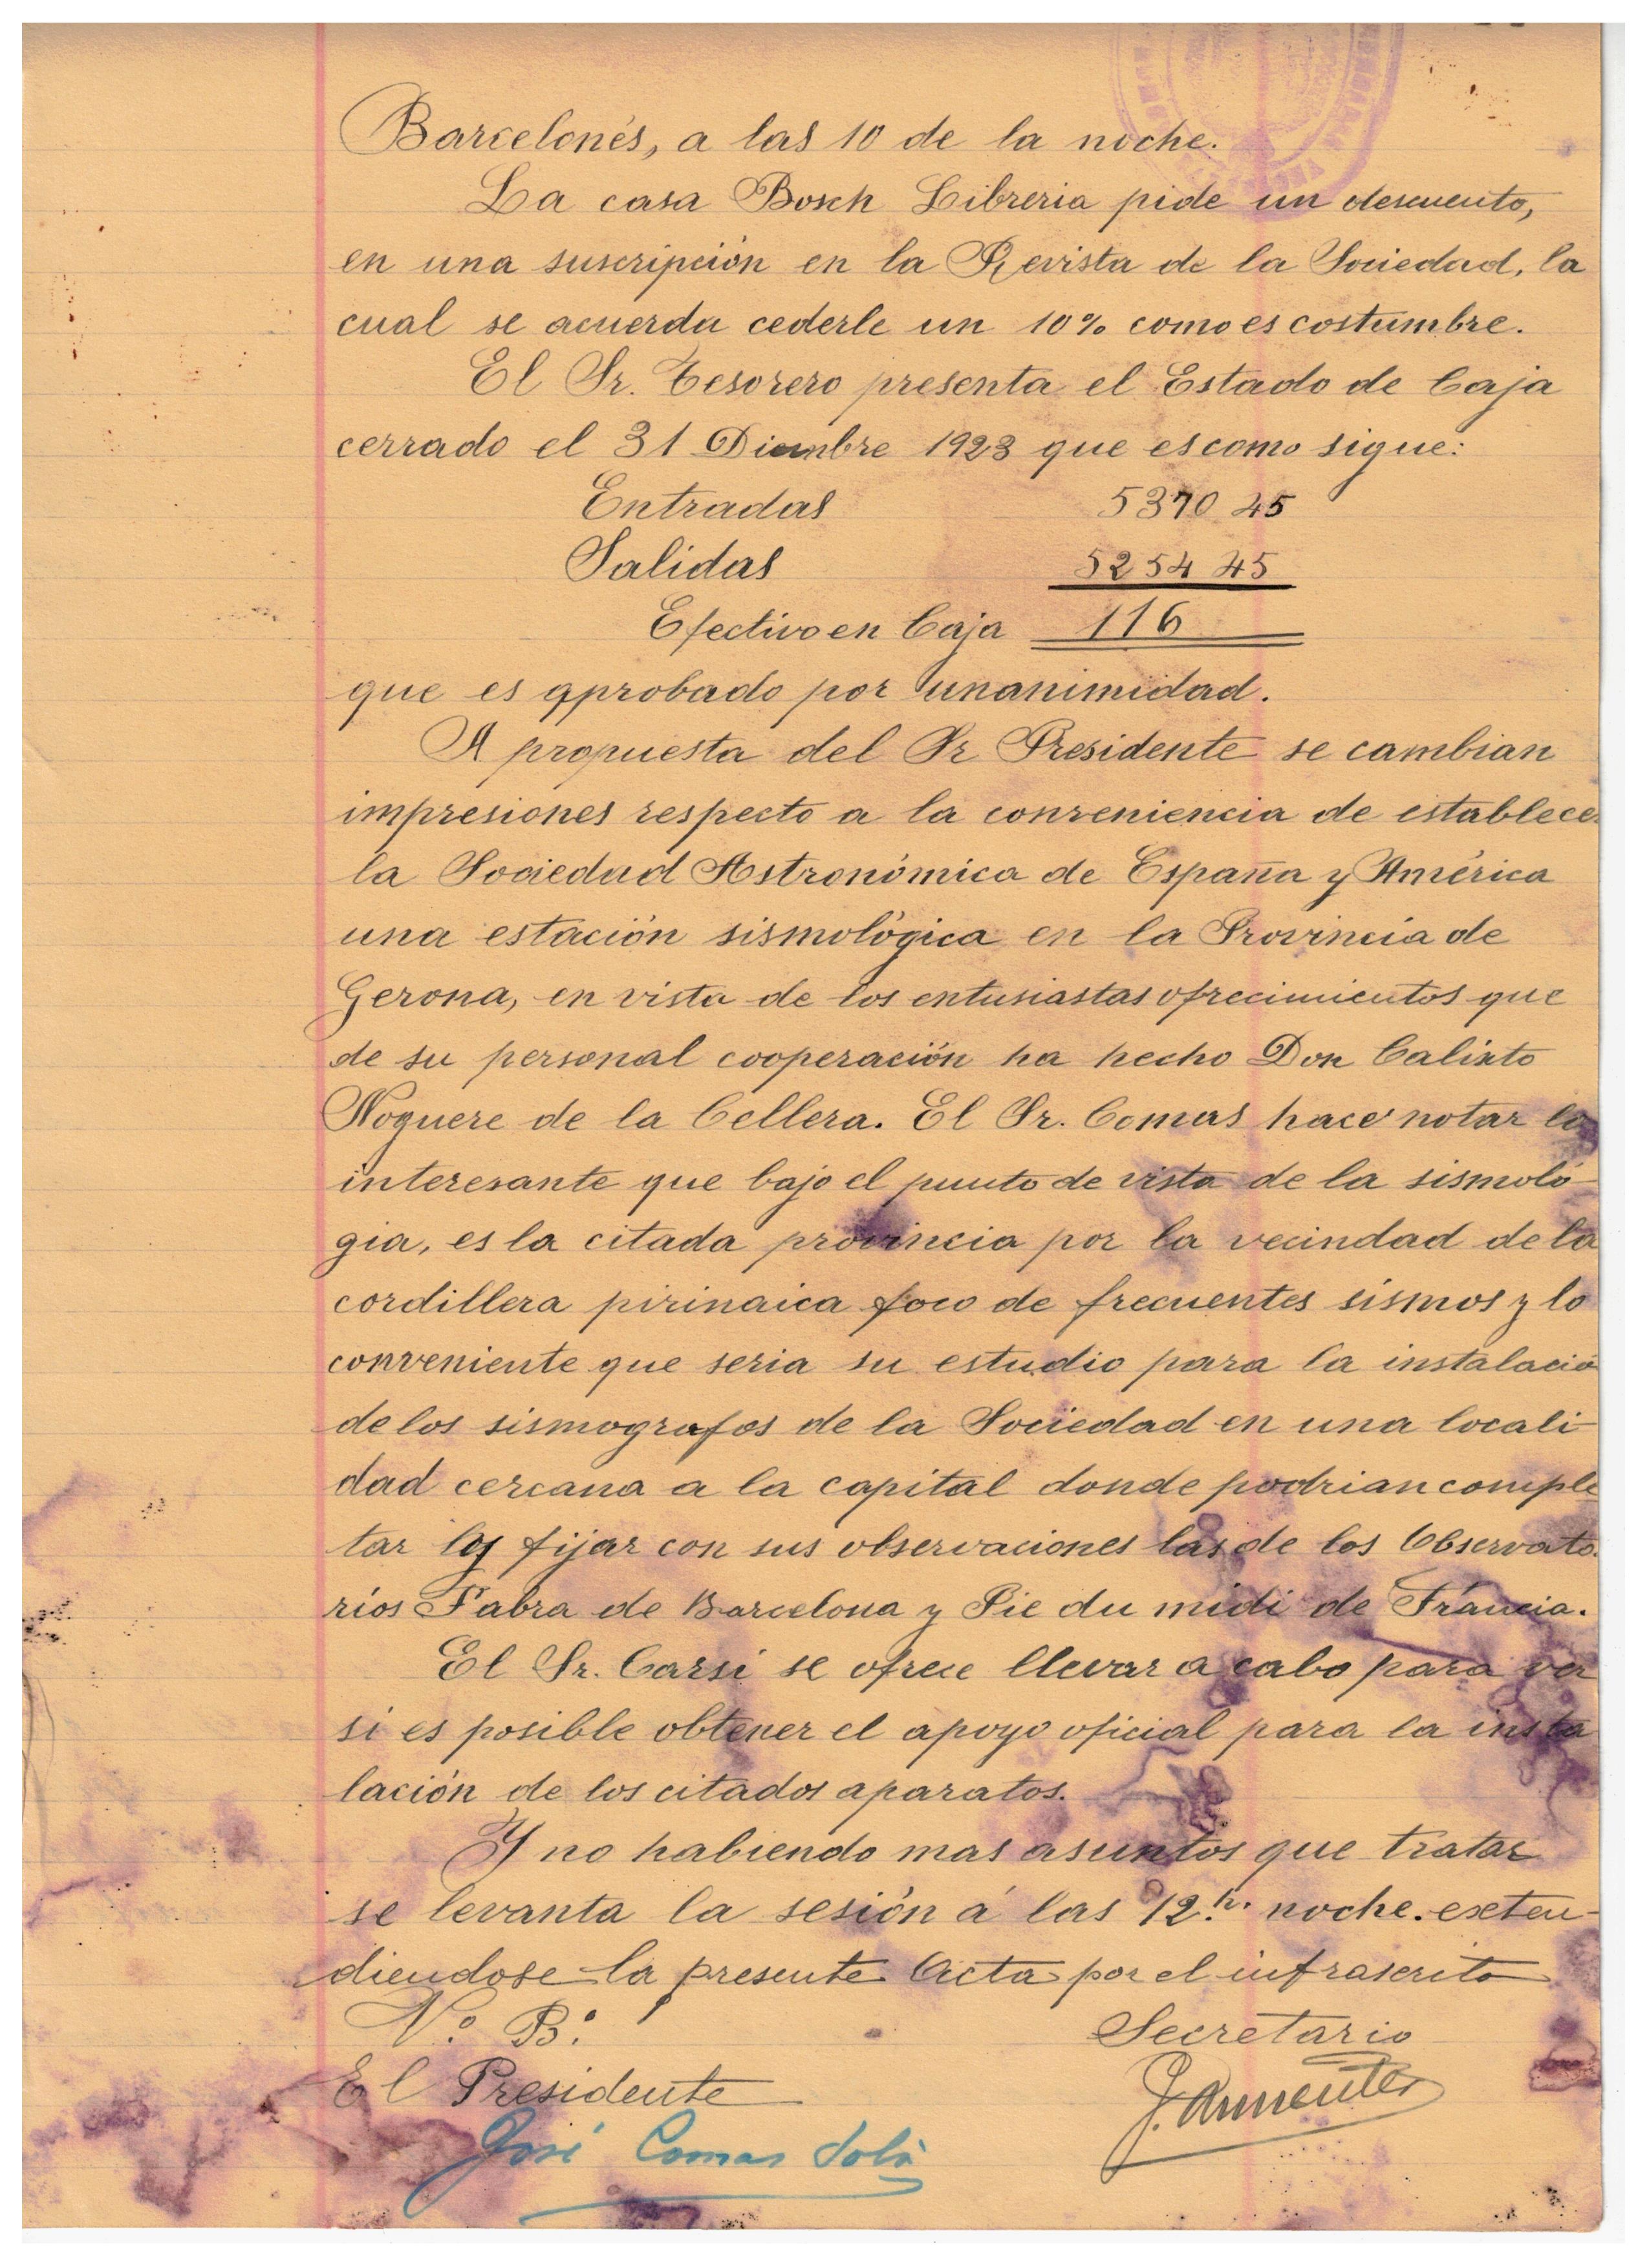 Barcelonés, a las 10 de la noche.
La casa Bosch Libreria pide un descuento,
en una suscripción en la Revista de la Sociedad, la
cual se acuerda cederle un 10% como es costumbre.
El Sr. Tesorero presenta el Estado de Caja
cerrado el 31 Diciembre 1923 que es como sigue:
Entradas 5370 45
Salidas 5254 45
Efectivo en Caja 116
que es aprobado por unanimidad.
A propuesta del Sr Presidente se cambian
impresiones respecto a la conveniencia de establecer
la Sociedad Astronómica de España y América
una estación sismológica en la Provincia de
Gerona, en vista de los entusiastas ofrecimientos que
de su personal cooperación ha hecho Don Calixto
Noguere de la Cellera. El Sr. Comas hace notar lo
interesante que bajo el punto de vista de la sismoló-
gia, es la citada provincia por la vecindad de la
cordillera pirinaica foco de frecuentes sismos y lo
conveniente que seria su estudio para la instalación
de los sismografos de la Sociedad en una locali-
dad cercana a la capital donde podrian comple
tar y fijar con sus observaciones las de los Observato-
rios Fabra de Barcelona y Pie du midi de Francia.
El Sr. Carsi se ofrece llevar a cabo para ver
si es posible obtener el apoyo oficial para la insta
lación de los citados aparatos.
Y no habiendo mas asuntos que tratar
se levanta la sesión á las 12 h. noche. exten-
diendose la presente Acta por el infrascrito
V.º B.º Secretario
El Presidente J. Armenter
José Comas Solá